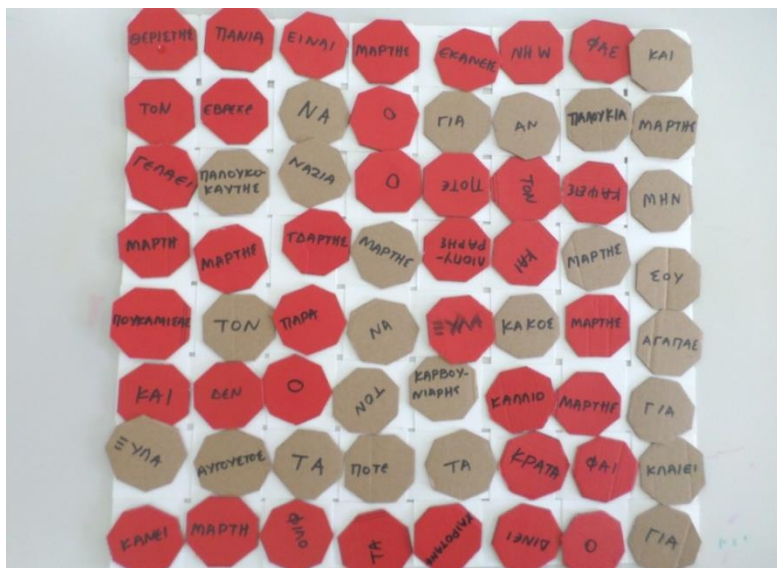 ΘΕΡΙΣΤΗΣ ΠΑΝΙΑ ΕΙΝΑΙ ΜΑΡΤΗΣ ΕΚΑΝΕΙΣ ΝΗW ΦΑΕ ΚΑΙ
ΤΟΝ ΕΒΡΕΧΕ ΝΑ Ο ΓΙΑ ΑΝ ΠΑΛΟΥΚΙΑ ΜΑΡΤΗΣ
ΓΕΛΑΕΙ ΠΑΛΟΥΚΟ-ΚΑΥΤΗΣ ΝΑΖΙΑ Ο ΠΟΤΕ ΤΟΝ ΚΑΨΕΙΣ ΜΗΝ
ΜΑΡΤΗ ΜΑΡΤΗΣ ΓΔΑΡΤΗΣ ΜΑΡΤΗΣ ΚΑΙ ΜΑΡΤΗΣ ΣΟΥ
ΠΟΥΚΑΜΙΣΑΣ ΤΟΝ ΠΑΡΑ ΝΑ ΞΥΛΑ ΚΑΚΟΣ ΜΑΡΤΗΣ ΑΓΑΠΑΣ
ΚΑΙ ΔΕΝ Ο ΤΟΝ ΚΑΡΒΟΥ-ΝΙΑΡΗΣ ΚΑΛΛΙΟ ΜΑΡΤΗΣ ΓΙΑ
ΞΥΛΑ ΑΥΓΟΥΣΤΟΣ ΤΑ ΠΟΤΕ ΤΑ ΚΡΑΤΑ ΦΑΙ ΚΛΑΙΕΙ
ΚΑΝΕΙ ΜΑΡΤΗ ΦΙΛΟ ΤΑ ΔΙΝΕΙ Ο ΓΙΑ